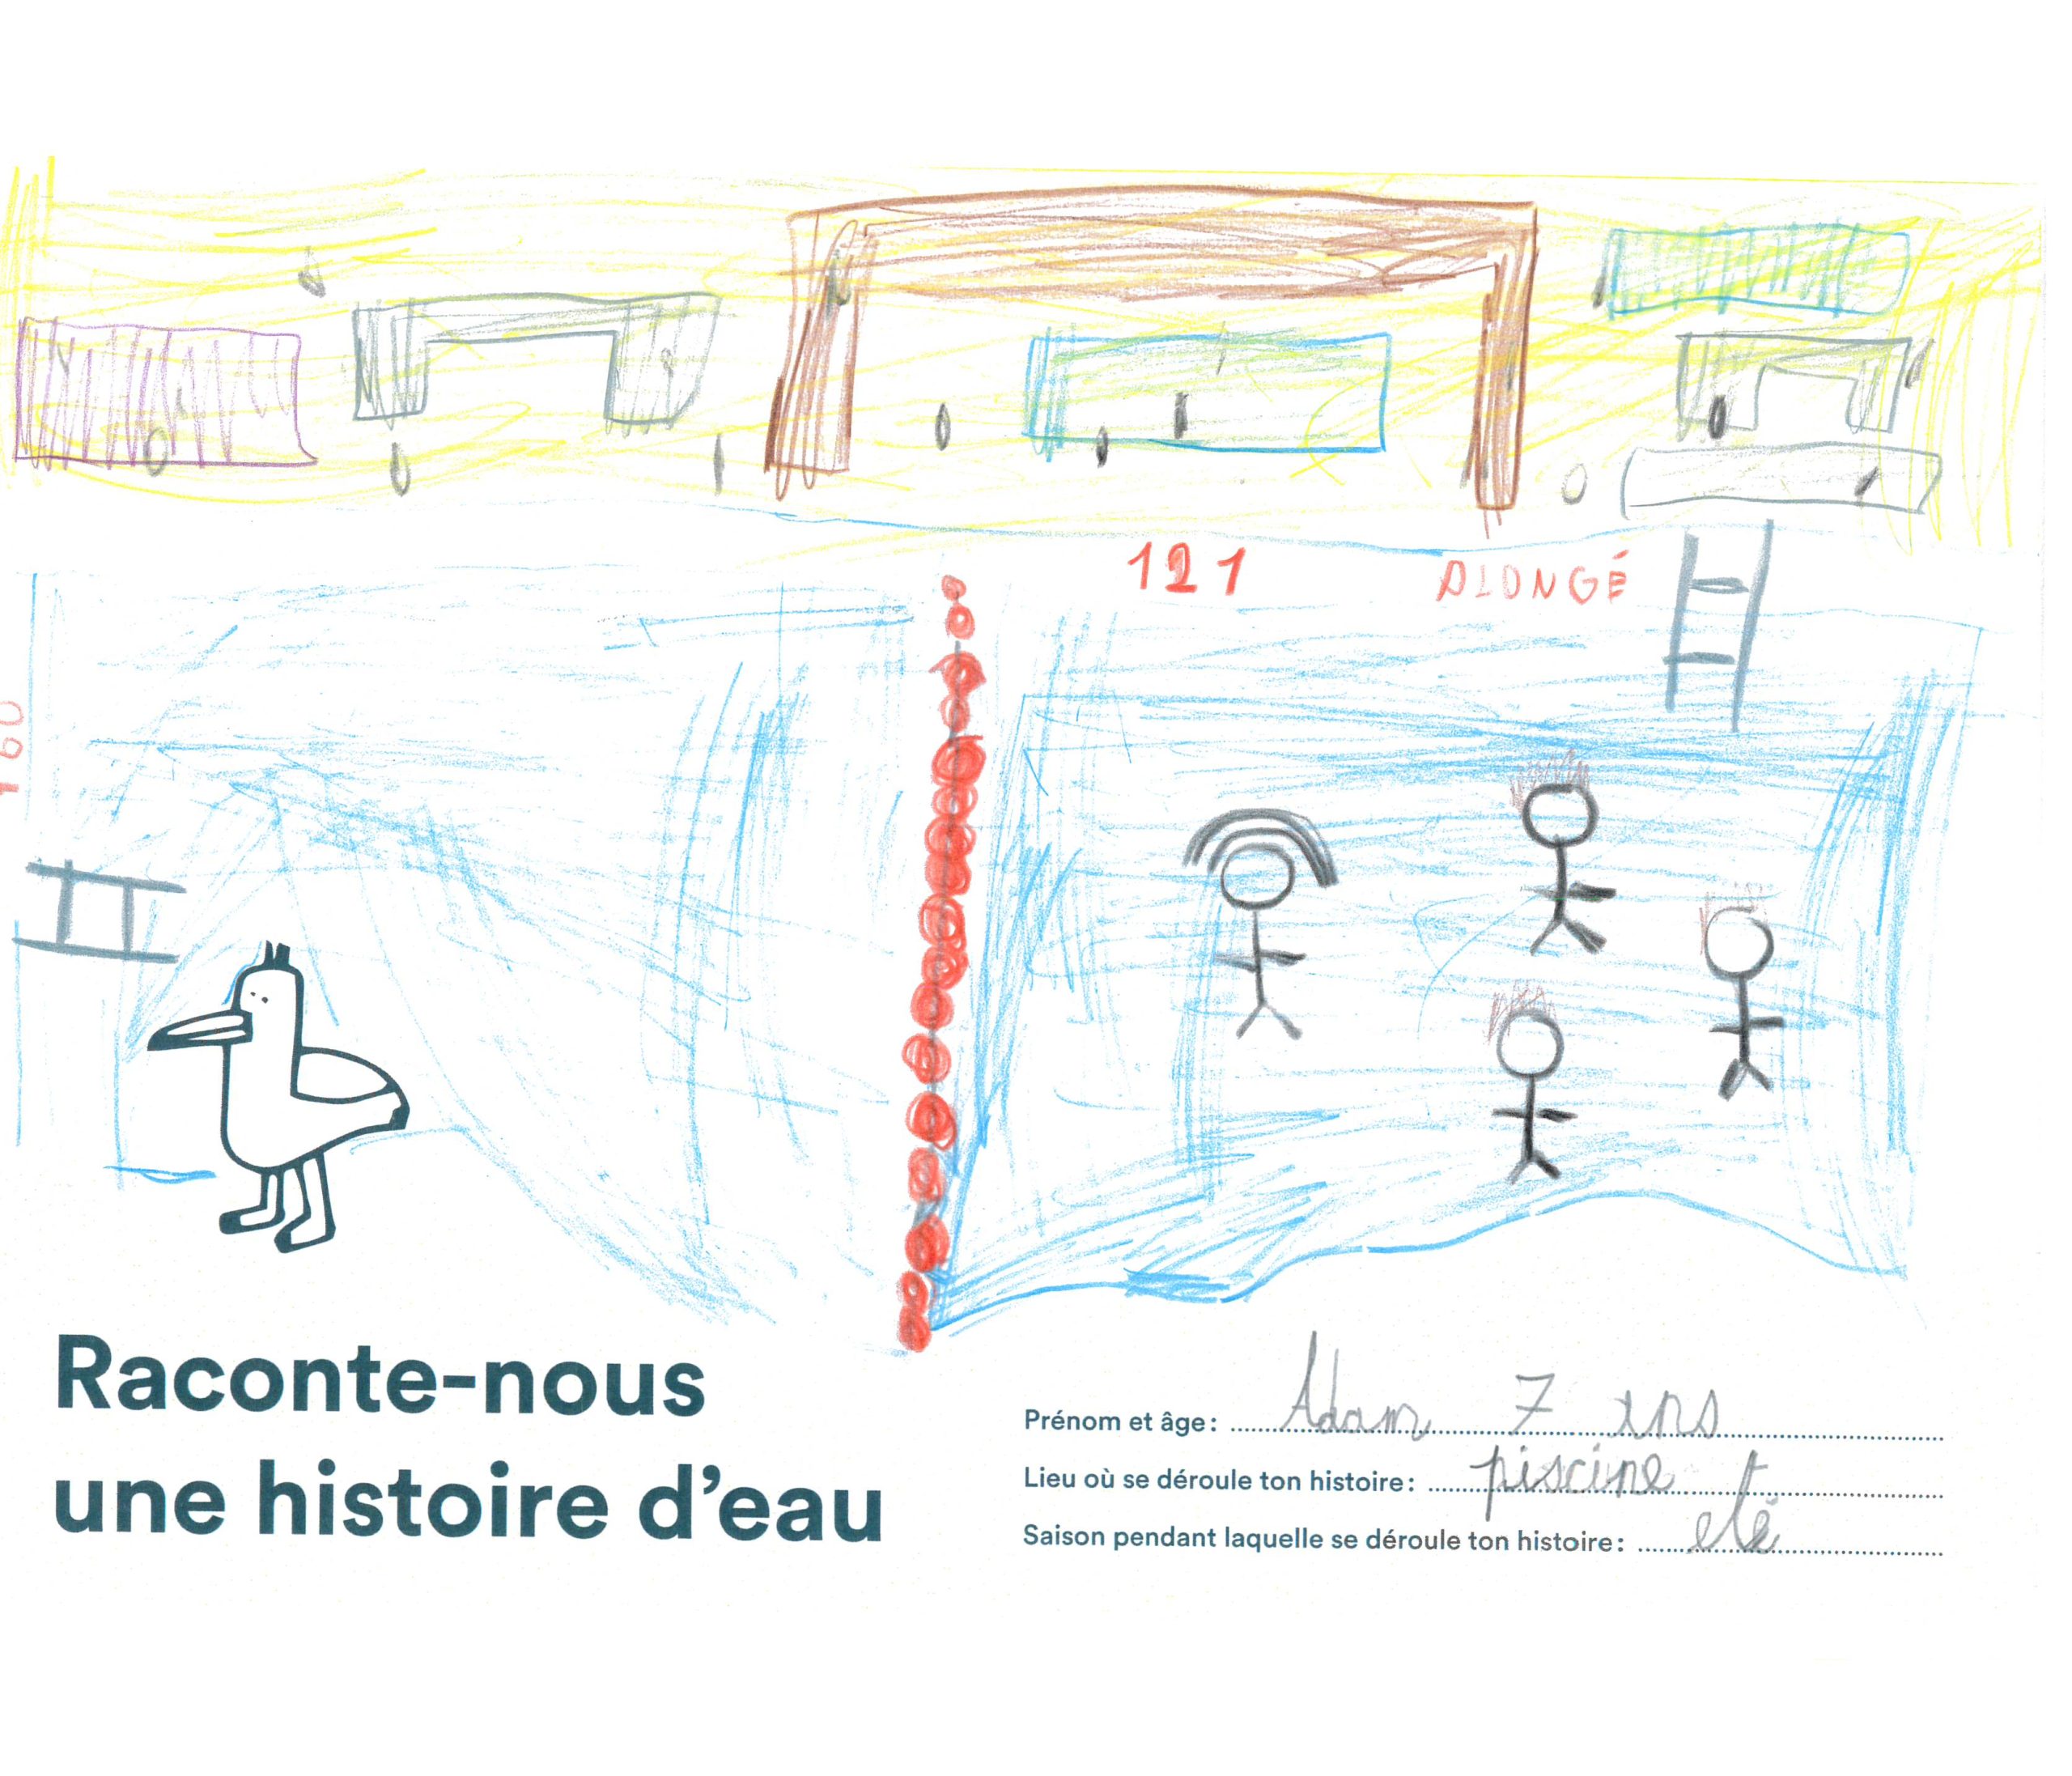 121 PLONGÉ
160
Raconte-nous
une histoire d'eau
Prénom et âge: Adam 7 ans
Lieu où se déroule ton histoire: piscine
Saison pendant laquelle se déroule ton histoire: eté